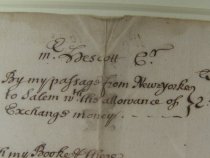 m. Prescott Cr.
By my passage from New yorke
to Salem wth the allowance of
Exchange money
my Booke